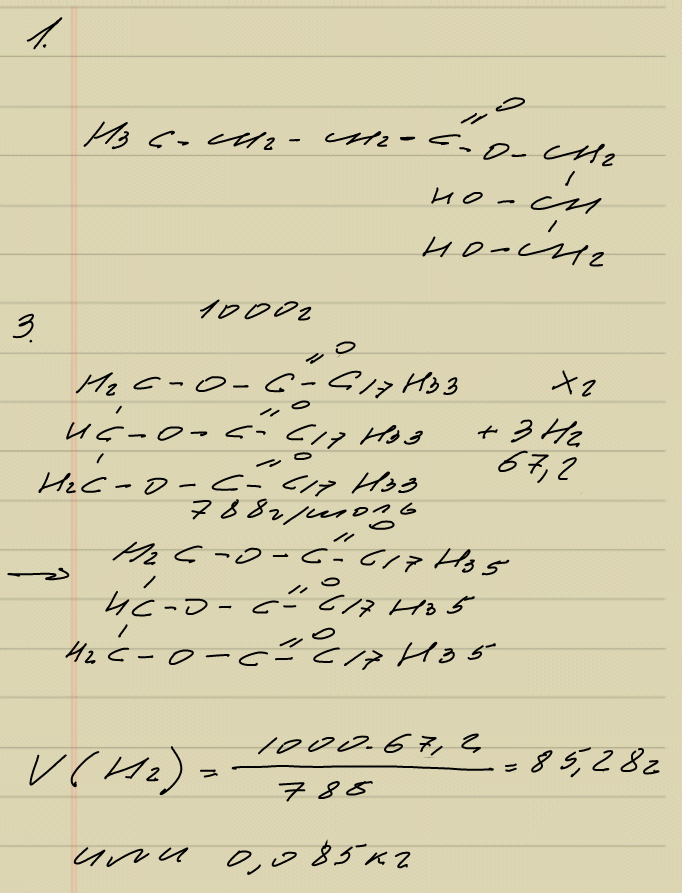 1.
H3C - CH2 - CH2 - C =O
- O - CH2
HO - CH
HO - CH2
3. 1000г
H2C - O - C =O - C17H33 Xг
HC - O - C =O - C17H33 + 3H2
H2C - O - C =O - C17H33 67,2
788г/моль
→ H2C - O - C =O - C17H35
HC - O - C =O - C17H35
H2C - O - C =O - C17H35
V(H2) = 1000·67,2 / 788 = 85,28г
или 0,085кг